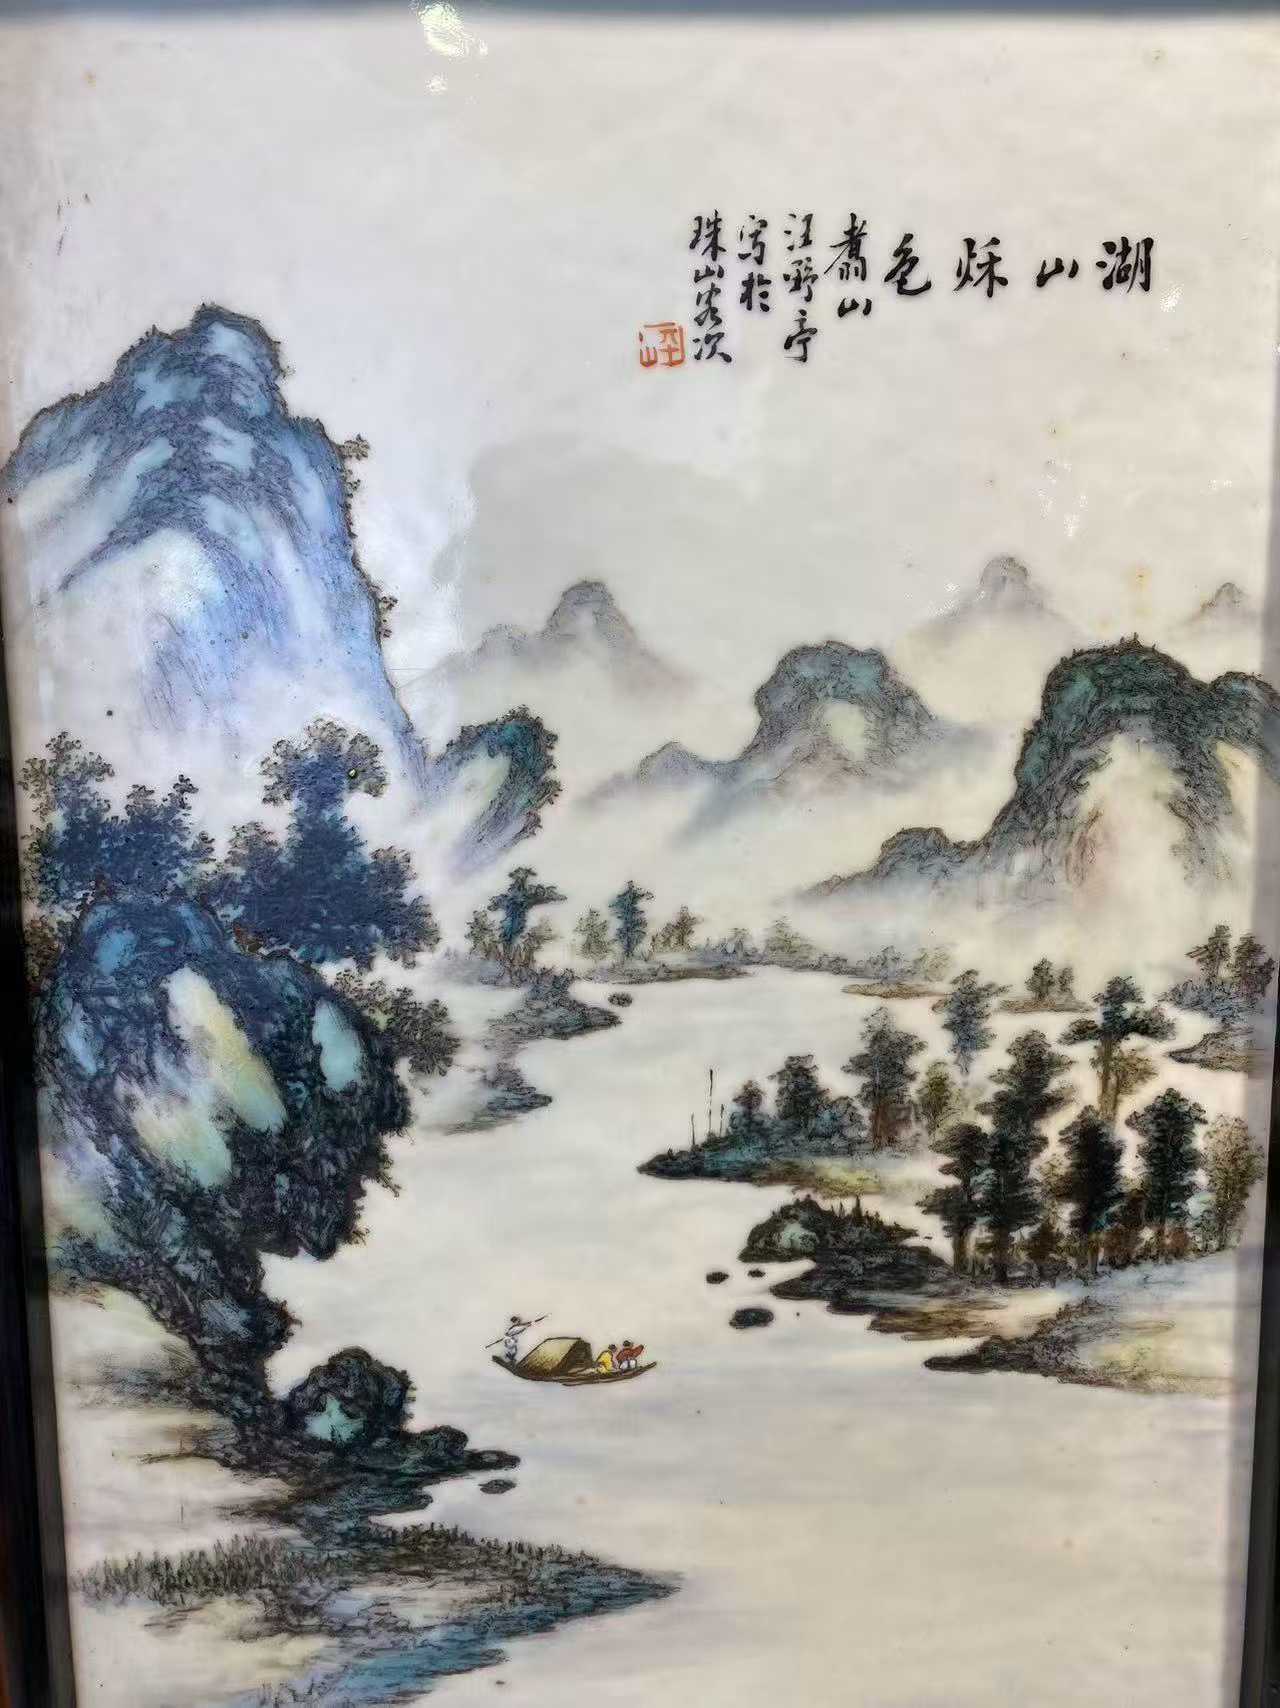 湖山秌色
翥山
汪野亭
寫於
珠山客次
平山